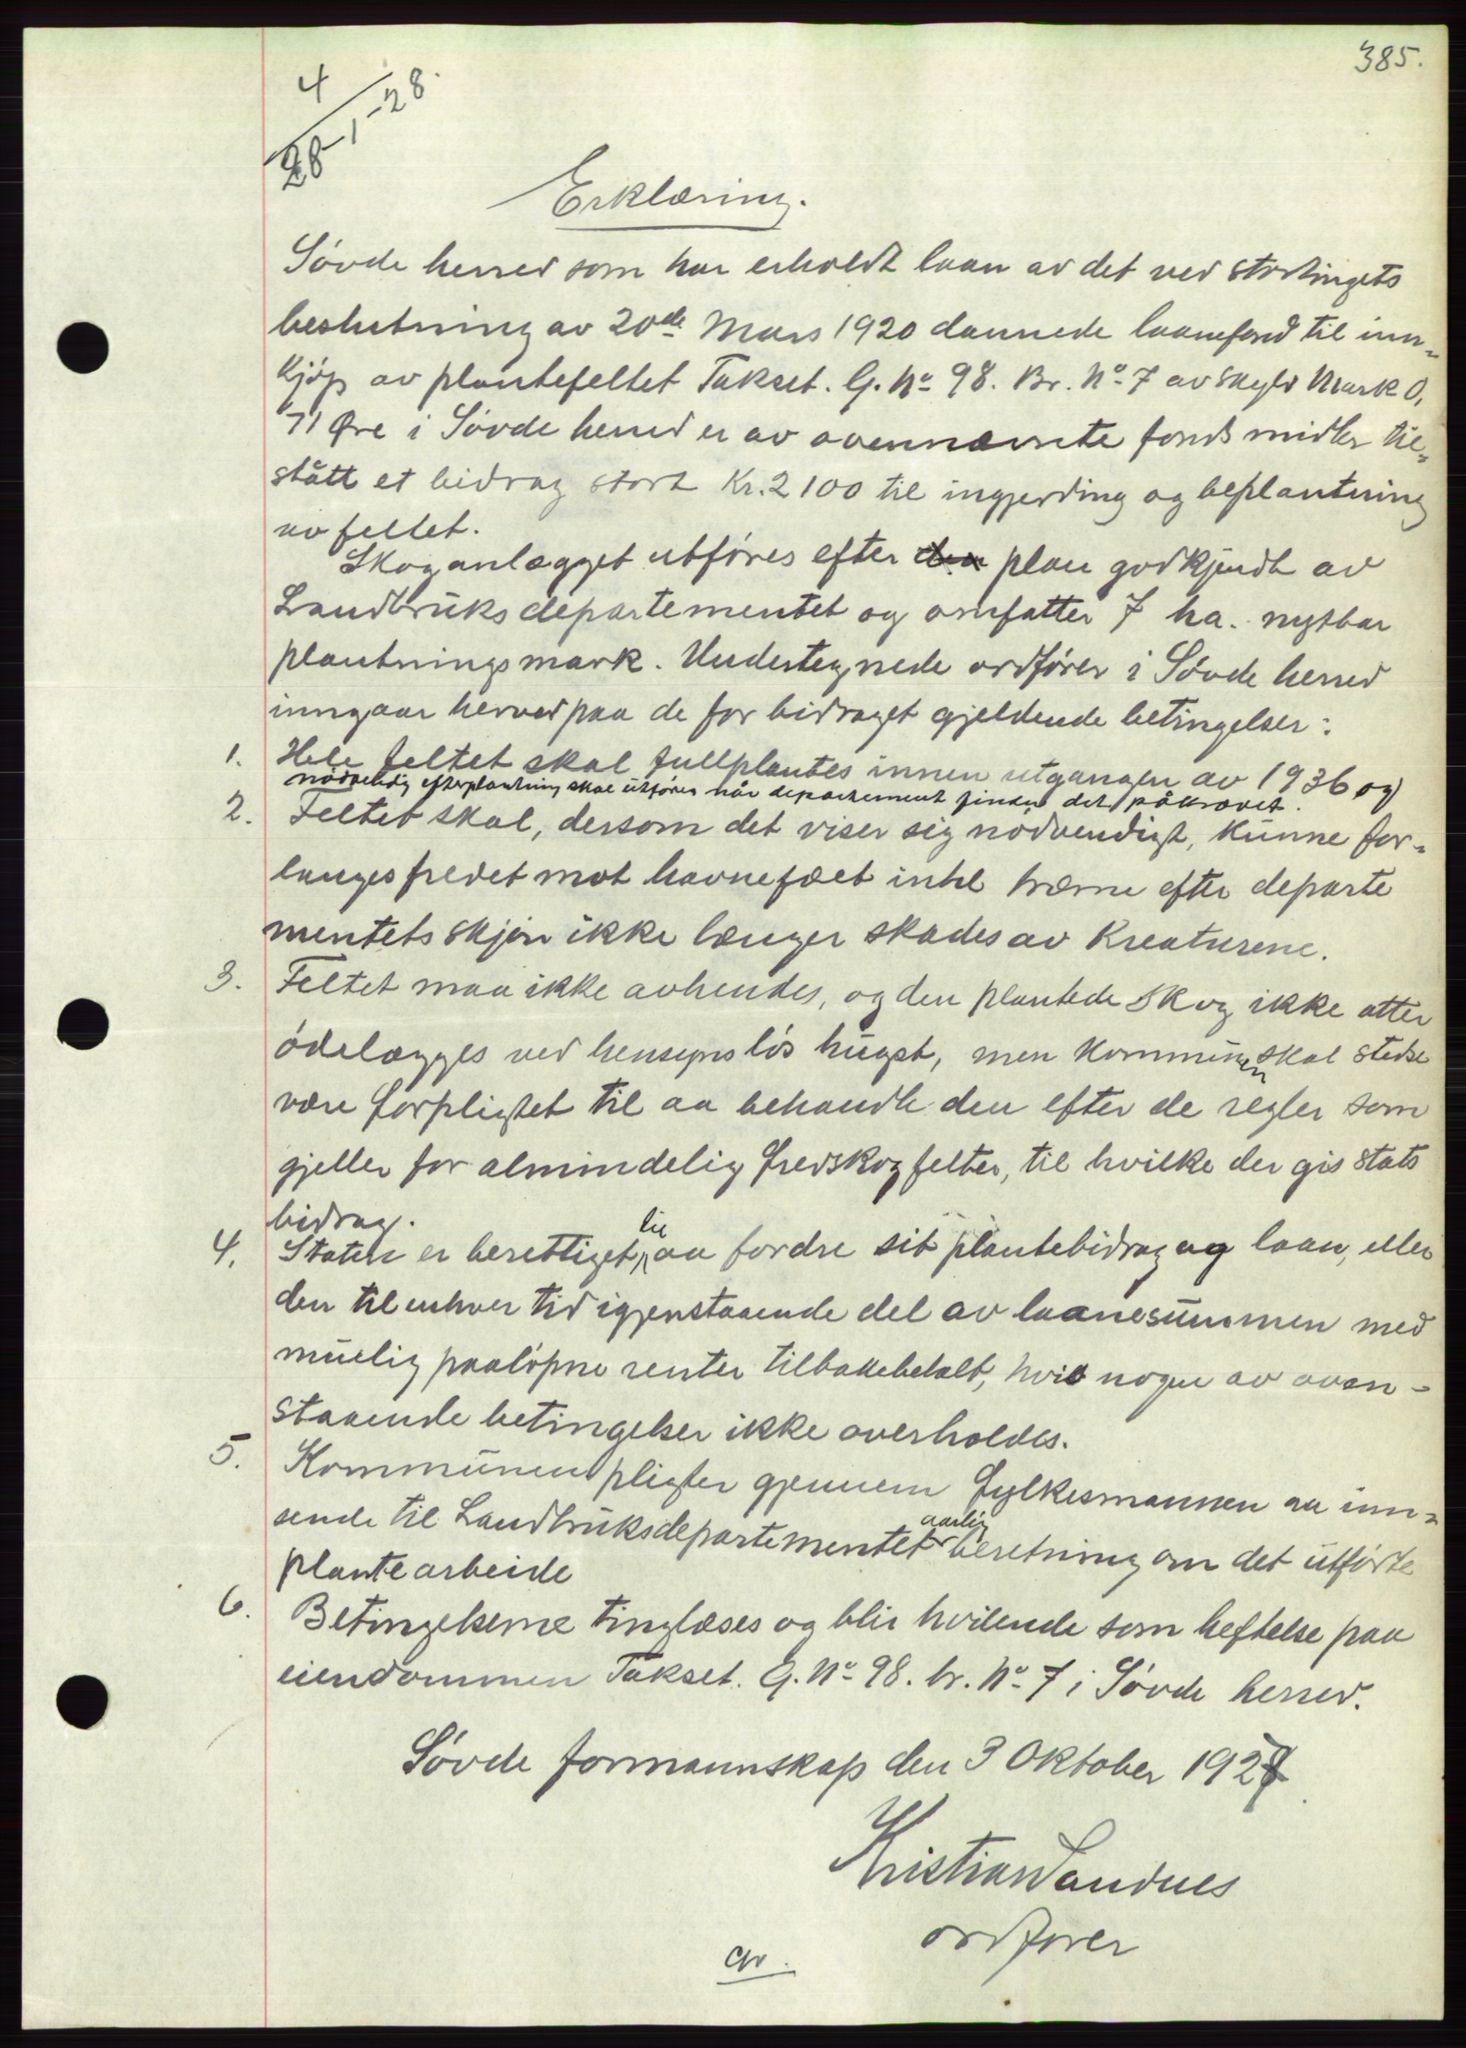 385.
4/28-1-28.
Erklæring.
Søvde herred som har erholdt laan av det ved stortingets
beslutning av 20de Mars 1920 dannede laanefond til inn-
kjøp av plantefeltet Takset. G. No 98. Br. No 7 av Skyld Mark 0,
71 Øre i Søvde herred er av ovennævnte fonds midler til-
stått et bidrag stort Kr. 2100 til ingjerding og beplantning
av feltet.
Skoganlægget utføres efter plan godkjendt av
Landbruksdepartementet og omfatter 7 ha. nyttbar
plantningsmark. Undertegnede ordfører i Søvde herred
inngaar herved paa de for bidraget gjeldende betingelser:
1. Hele feltet skal fullplantes innen utgangen av 1936 og
nødvendig efterplantning skal utføres når departement finder det påkrævet.
2. Feltet skal, dersom det viser sig nødvendigt, kunne for-
langes fredet mot havnefæet intil trærne efter departe
mentets skjøn ikke længer skades av Kreaturene.
3. Feltet maa ikke avhendes, og den plantede Skog ikke atter
ødelægges ved hensynsløs hugst, men Kommunen skal stedse
være forpligtet til aa behandle den efter de regler som
gjeller for almindelig fredskogfelter, til hvilke der gis stats
bidrag.
4. Staten er berettiget til aa fordre sit plantebidrag og laan, eller
den til enhver tid igjenstaaende del av laanesummen med
muelig paaløpne renter tilbakebetalt, hvis nogen av ovan-
staaende betingelser ikke overholdes.
5. Kommunen pligter gjennem fylkesmannen aa inn-
sende til Landbruksdepartementet aarlig beretning om det utførte
plantearbeide
6. Betingelserne tinglæses og blir hvilende som heftelse paa
eiendommen Takset. G. No 98. br. No 7 i Søvde herred.
Søvde formannskap den 3 Oktober 1927
Kristian Landnes
ordfører